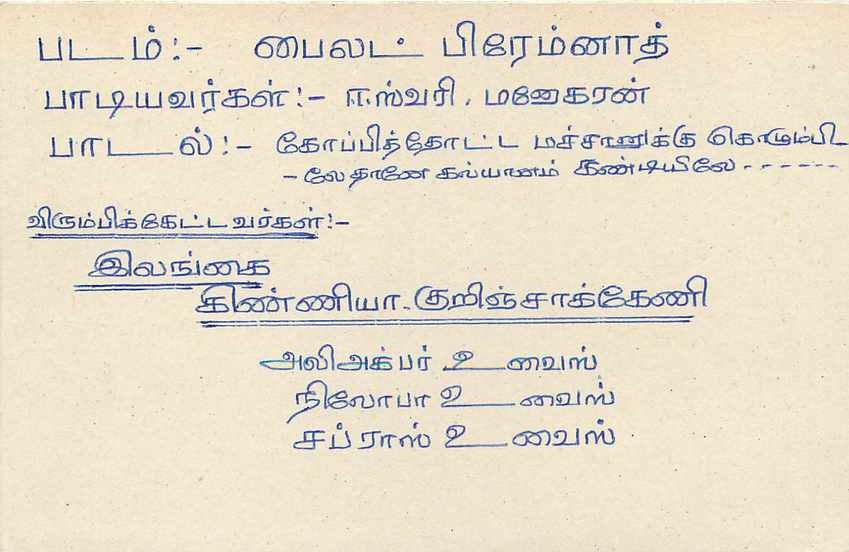 படம்:- பைலட் பிரேம்னாத்
பாடியவர்கள்:- ஈஸ்வரி, மனோகரன்
பாடல்:- கோப்பித்தோட்ட மச்சானுக்கு கொழும்பி
- லேதானே கல்யானம் கண்டியிலே - - - - - -
விரும்பிக்கேட்டவர்கள்:-
இலங்கை
கிண்ணியா - குறிஞ்சாக்கேணி
அலிஅக்பர் உவைஸ்
நிலோபா உவைஸ்
சப்ராஸ் உவைஸ்